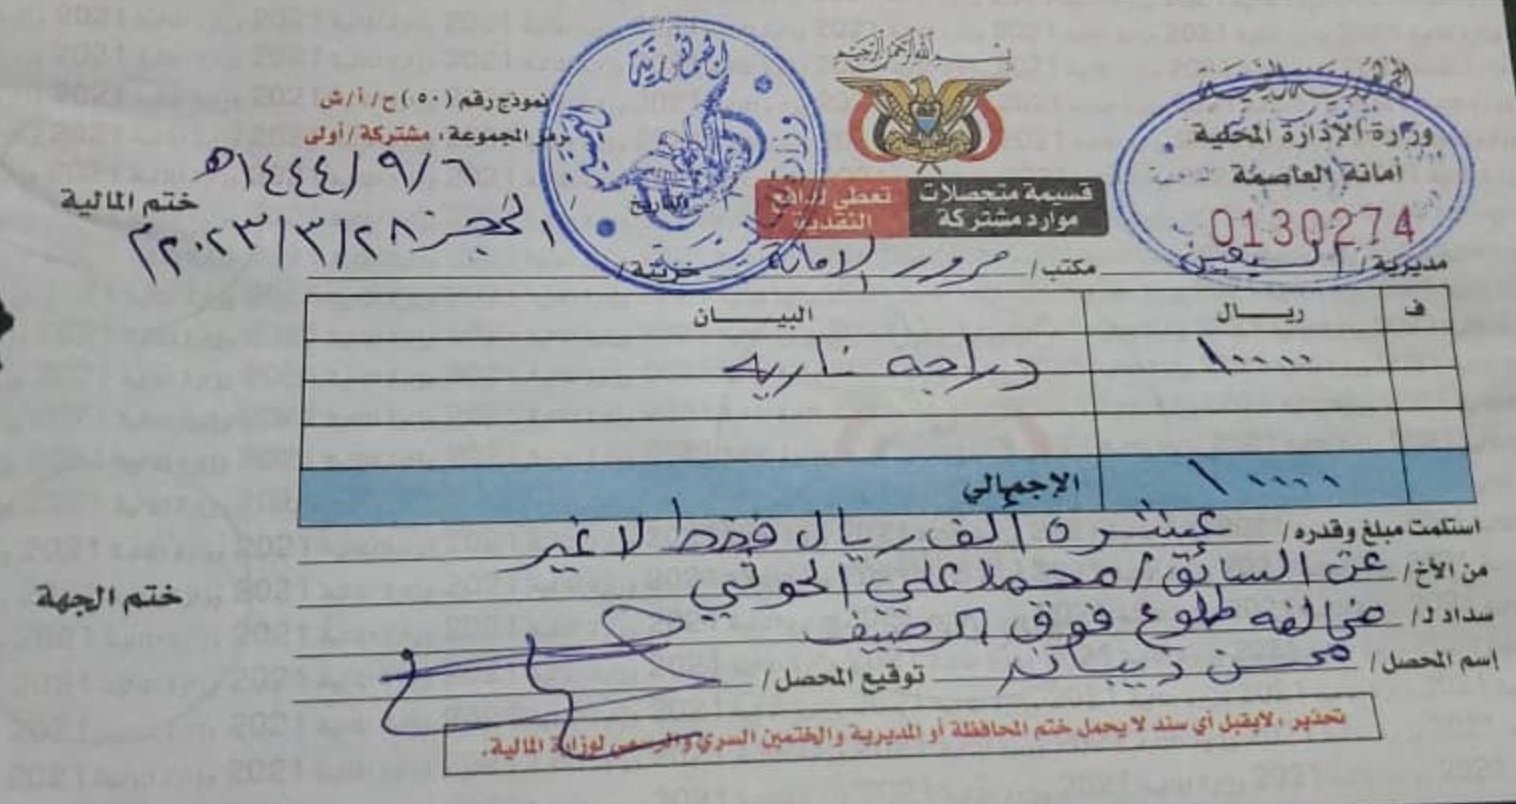 بسم الله الرحمن الرحيم
الجمهورية اليمنية
وزارة الإدارة المحلية
أمانة العاصمة
0130274
قسيمة متحصلات موارد مشتركة
تعطى لدافع النقدية
نموذج رقم (٥٠) ح/أ/ش
رمز المجموعة: مشتركة/أولى
التاريخ ٦/٩/١٤٤٤هـ
٢٨/٣/٢٠٢٣م
ختم المالية
مديرية/ السبعين مكتب/ مرور الامانة خزينة/ الحجز
ف ريـــال البيـــان
١٠٠٠٠ دراجه ناريه
١٠٠٠٠ الإجمالي
استلمت مبلغ وقدره/ عشرة ألف ريال فقط لا غير
من الأخ/ عن السائق/ محمد علي الحوثي
سداد لـ/ مخالفه طلوع فوق الرصيف
ختم الجهة
إسم المحصل/ محسن ذيبان توقيع المحصل/
تحذير: لايقبل أي سند لا يحمل ختم المحافظة أو المديرية والختمين السري والرسمي لوزارة المالية.